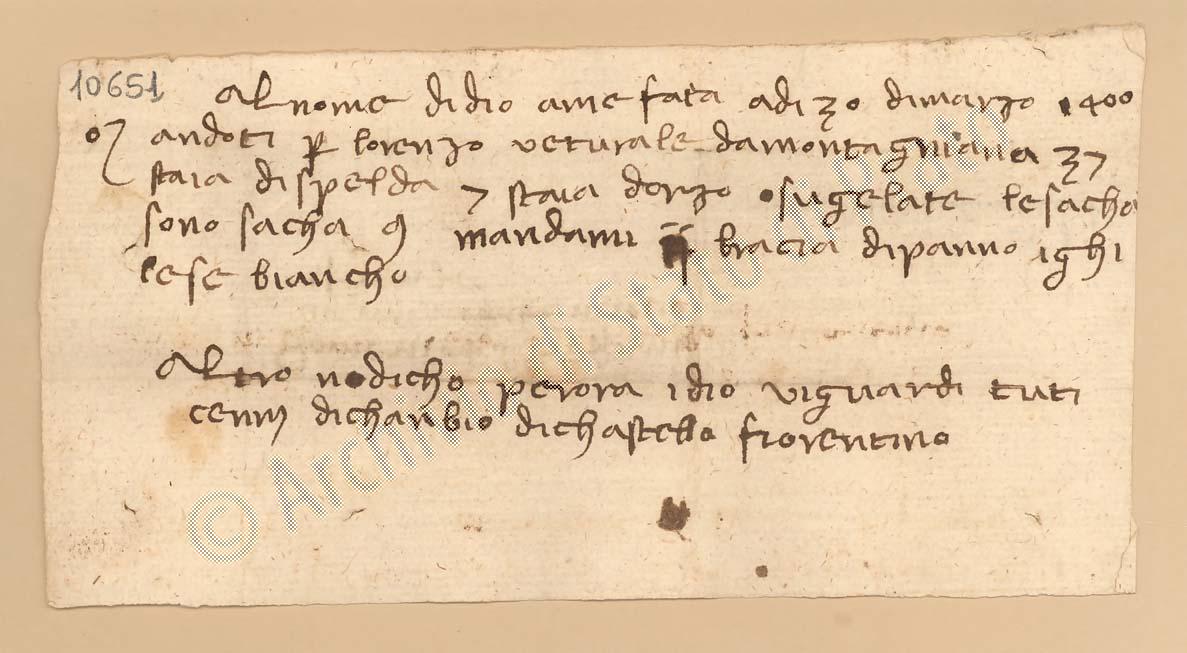 10651
Al nome didio ame fata adi 30 dimarzo 1400
andoti p lorenzo veturale damontagniana 37
staia dispelda 7 staia dorzo sugelate lesacha
sono sacha 9 mandami ij bracia dipanno ighi
lese biancho
Altro nodicho perora idio viguardi tuti
cenni dichanbio dichastello fiorentino
© Archivio di Stato di Prato